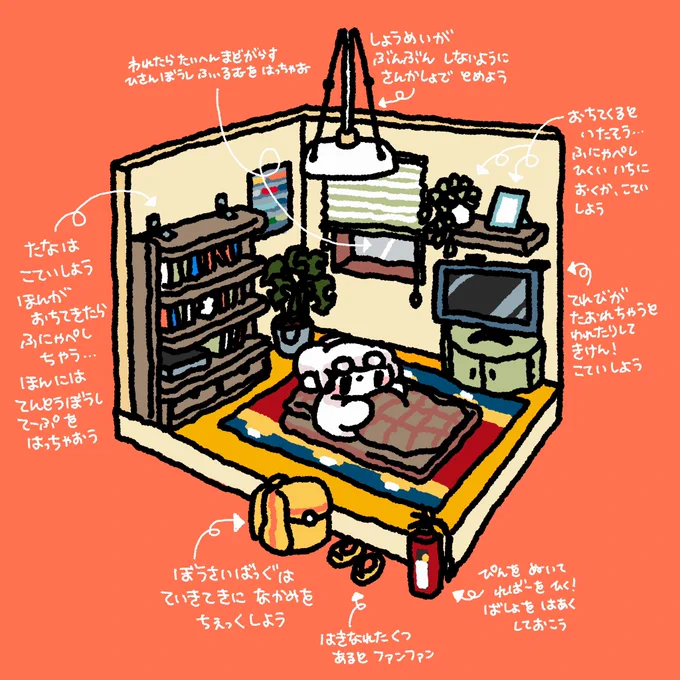 われたら たいへん まどがらす
ひさんぼうし ふぃるむを はっちゃお
しょうめいが
ぶんぶん しないように
さんかしょで とめよう
おちてくると
いたそう…
ふにゃぺし
ひくい いちに
おくか、こてい
しよう
たなは
こていしよう
ほんが
おちてきたら
ふにゃぺし
ちゃう…
ほんには
てんとうぼうし
てーぷを
はっちゃおう
てれびが
たおれちゃうと
われたりして
きけん!
こていしよう
ぼうさいばっぐは
ていきてきに なかみを
ちぇっくしよう
はきなれたくつ
あると ファンファン
ぴんを ぬいて
ればーを ひく!
ばしょを はあく
しておこう